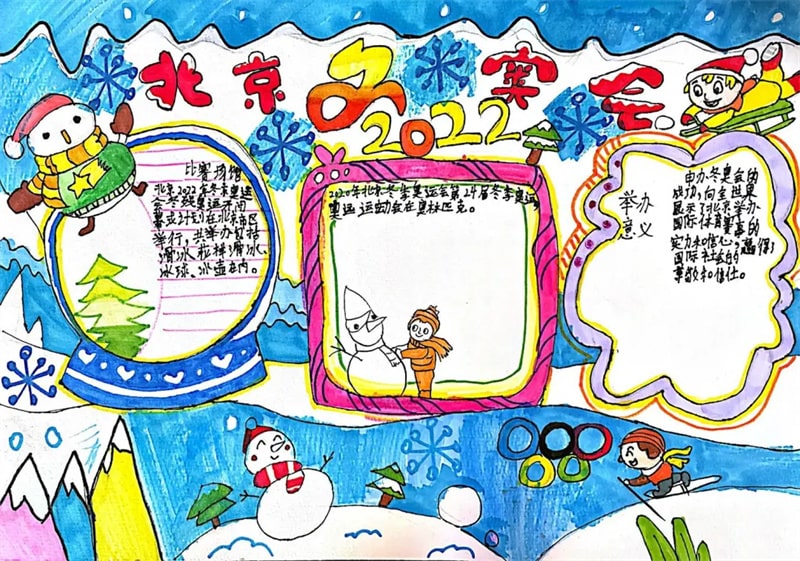 北京冬奥会
2022
比赛场馆
北京2022年冬季奥运
会冬残奥运开闭
幕式计划在北京市区
举行,共举办包括
滑冰、花样滑冰、
冰球、冰壶在内。
2020年北京冬季奥运会第24届冬季奥运,
奥运 运动会在奥林匹克。
举办
意义
申办冬奥会的
成功,向全世界
展示了北京举办
国际体育赛事的
实力和信心,赢得了
国际社会的
尊敬和信任。